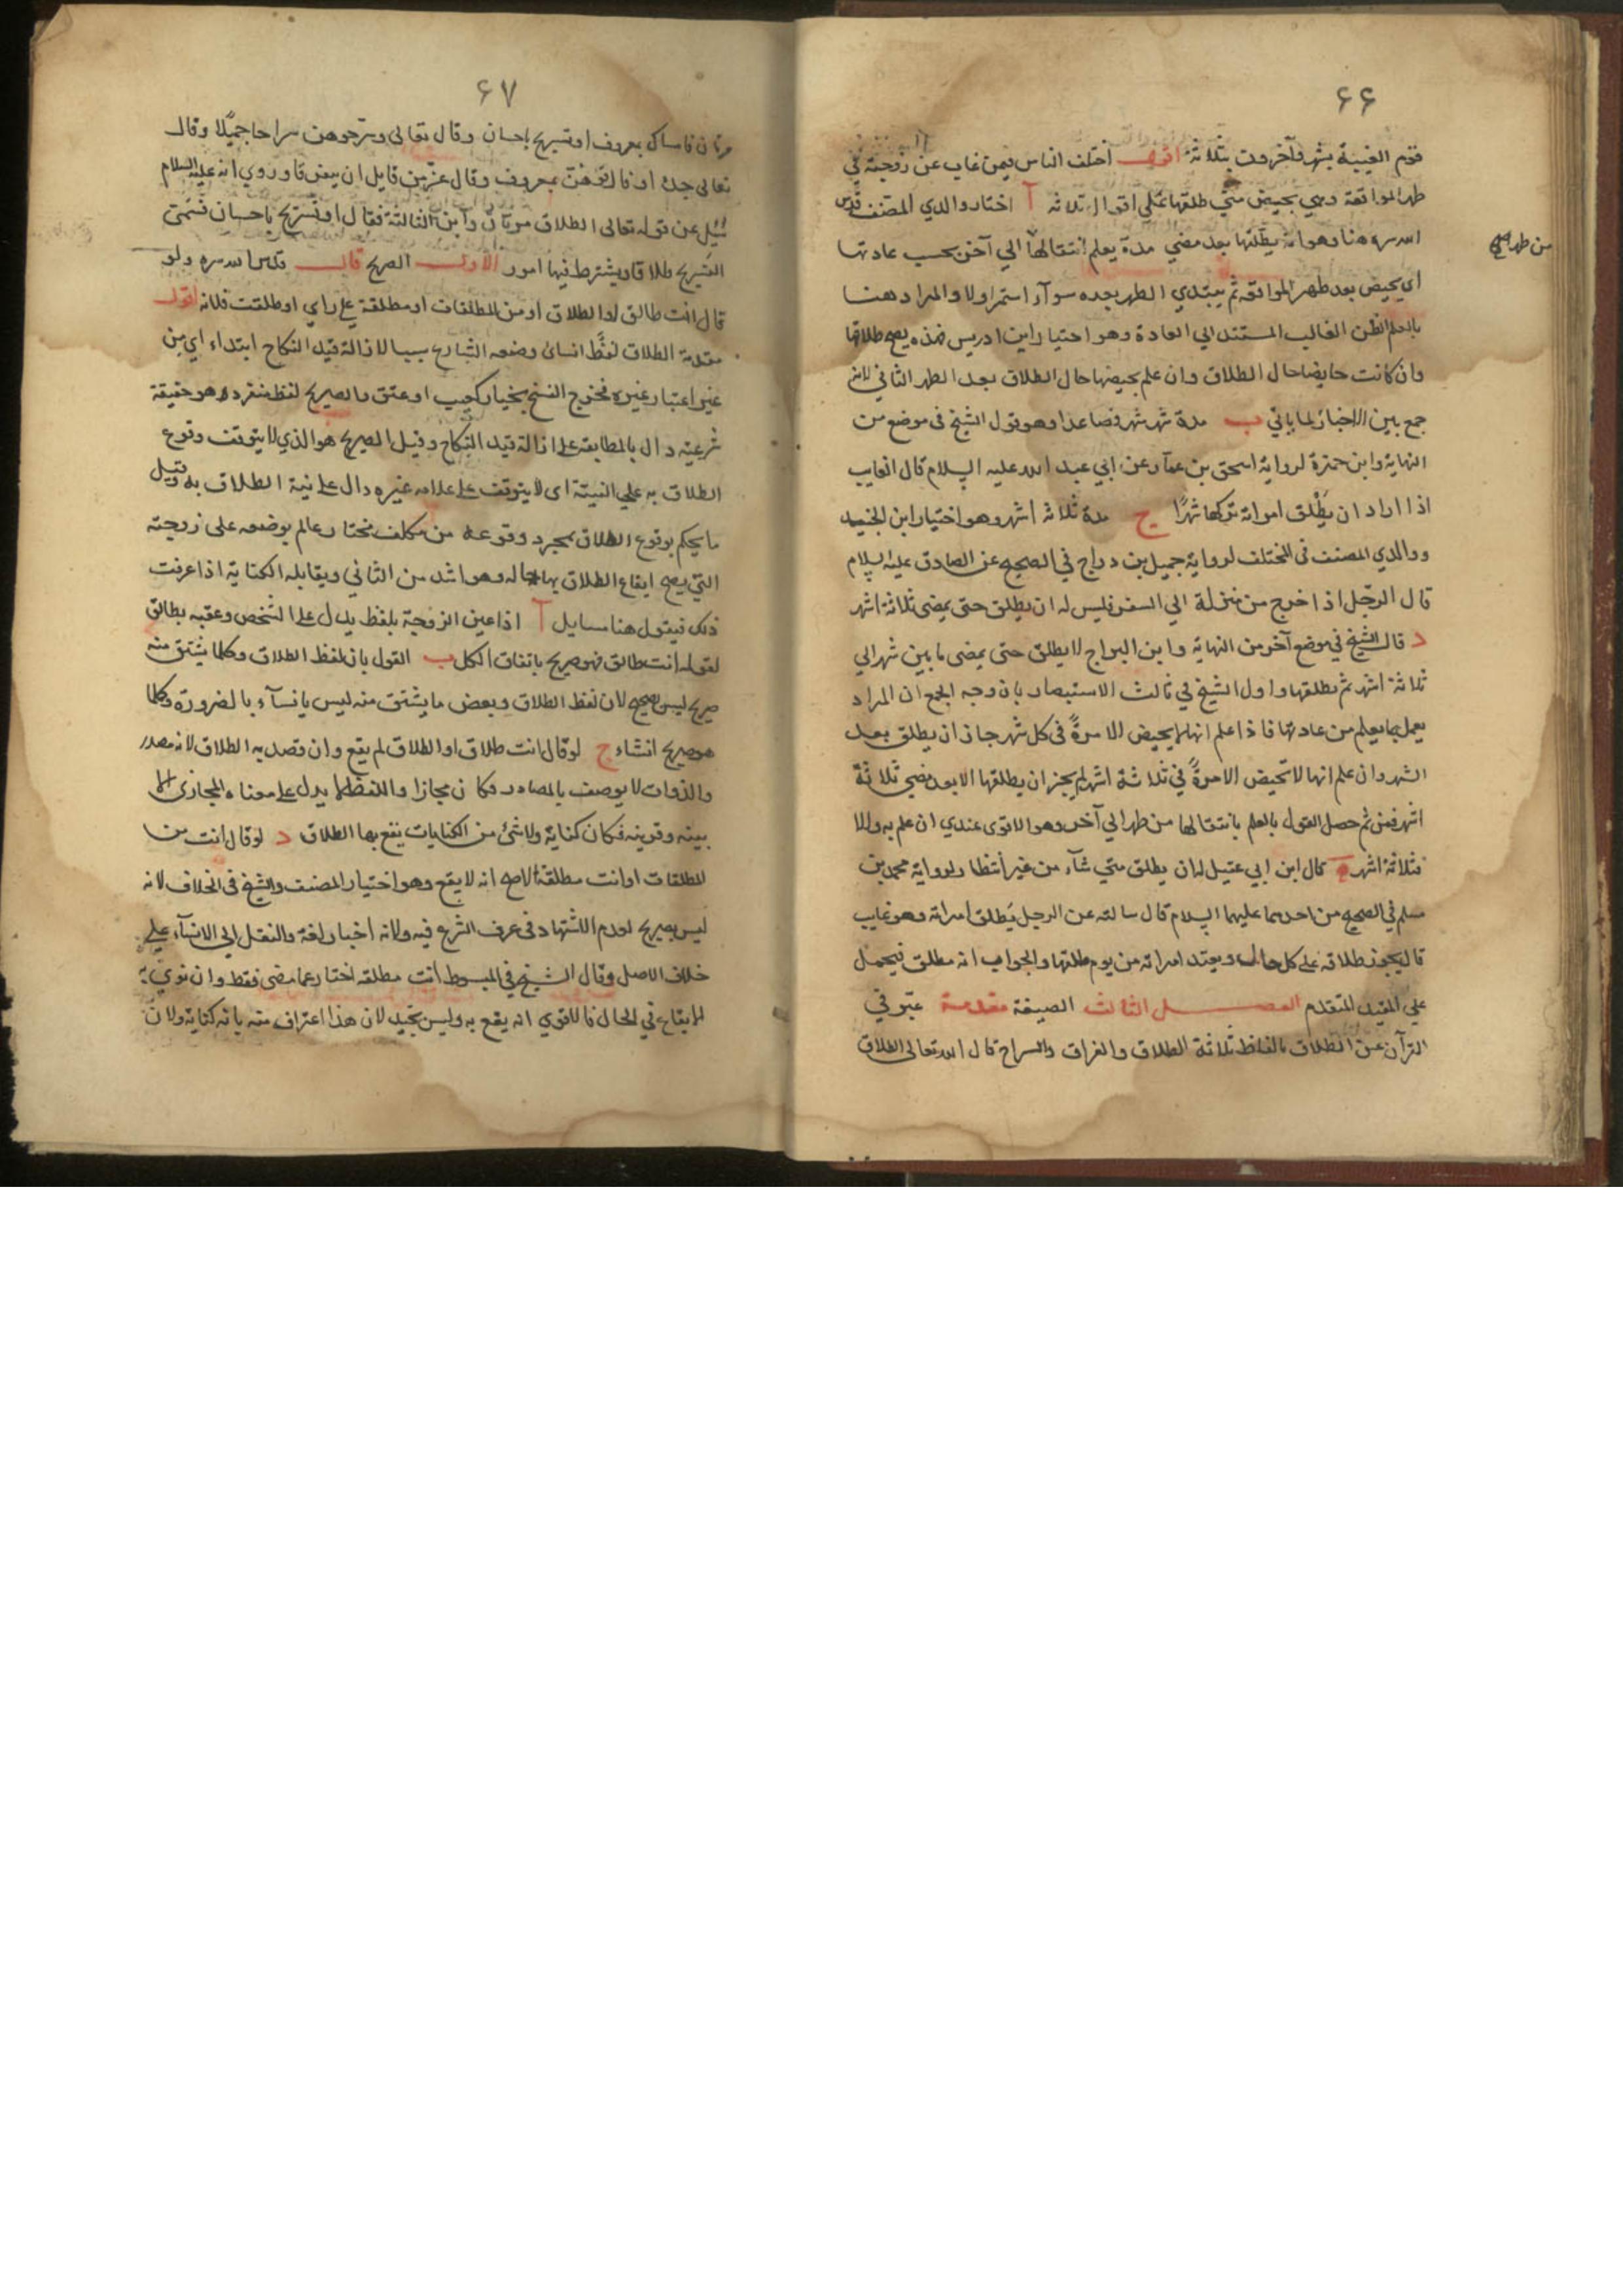 ۶۶
قوم الغيبة بشهر وآخرون بثلاثة اقول اختلف الناس فيمن غاب عن زوجته في
طهر المواقعة وهي تحيض متى طلقها على اقوال ثلاثه آ اختار والدي المصنف قدس
الله سره هنا وهو انه يطلقها بعد مضي مدة يعلم انتقالها الي آخر بحسب عادتها
من طهر
اي يحيض بعد طهر المواقعه ثم يبتدي الطهر بعده سوآء استمر اولا والمراد هنا
بالعلم الظن الغالب المستند الي العادة وهو اختيار ابن ادريس فهذه يصح طلاقها
وان كانت حايضا حال الطلاق وان علم بحيضها حال الطلاق بعد الطهر الثاني لانه
جمع بين الاخبار لما ياتي ب مدة شهر شهر فصاعدا وهو قول الشيخ في موضع من
النهاية وابن حمزة لرواية اسحق بن عمار عن ابي عبد الله عليه السلام قال الغايب
اذا اراد ان يطلق امراته تركها شهرًا ج مدة ثلاثه اشهر وهو اختيار ابن الجنيد
ووالدي المصنف في المختلف لرواية جميل بن دراج في الصحيح عن الصادق عليه السلام
قال الرجل اذا خرج من منزلة الي السفر فليس له ان يطلق حتى يمضي ثلاثة اشهر
د قال الشيخ في موضع آخر من النهاية وابن البراج لا يطلق حتى يمضى ما بين شهر الي
ثلاثة اشهر ثم يطلقها واول الشيخ في ثالث الاستبصار بان وجه الجمع ان المراد
يعمل بما يعلم من عادتها فاذا علم انها لا يحيض الا مرةً في كل شهر جاز ان يطلق بعد
الشهر وان علم انها لا تحيض الا مرةً في ثلاثة اشهر لم يجز ان يطلقها الا بعد مضي ثلاثة
اشهر فمن ثم حصل القول بالعلم بانتقالها من طهر الي آخر وهو الاقوى عندي ان علم به والا
فثلاثة اشهر ه قال ابن ابي عقيل له ان يطلق متي شآء من غير انتظار لرواية محمد بن
مسلم في الصحيح من احدهما عليهما السلام قال سالته عن الرجل يطلق امراته وهو غايب
قال يجوز طلاقه على كل حال ويعتد امراته من يوم طلقها والجواب انه مطلق فيحمل
علي المقيد المتقدم الفصل الثالث الصيغة مقدمة عبّر في
القرآن عن الطلاق بالفاظ ثلاثة الطلاق والفراق والسراح قال الله تعالى الطلاق
۶۷
مرتان فامساك بمعروف او تسريح باحسان وقال تعالى وسرحوهن سراحا جميلًا وقال
تعالى جده او فارقوهن بمعروف وقال عز من قايل ان يتفرقا وروي انه عليه السلام
سُئِل عن قوله تعالى الطلاق مرتان واين الثالثة فقال او تسريح باحسان فسمى
التسريح طلاقا ويشترط فيها امور الأول الصريح قال قدس الله سره ولو
قال انت طالق او الطلاق او من المطلقات او مطلقة على راي او طلقت فلانه اقول
مقدمة الطلاق لفظ انسائ وضعه الشارع سببا لازالة قيد النكاح ابتداء اي من
غير اعتبار غيره فخرج الفسخ بخيار كعيب او عتق والصريح لفظ منفرده هو حقيقة
شرعيه دال بالمطابقه على ازالة قيد النكاح وقيل الصريح هو الذي لا يتوقف وقوع
الطلاق به علي النيتة اى لا يتوقف على علامه غيره دال على نية الطلاق به وقيل
ما يحكم بوقوع الطلاق بمجرد وقوعه من مكلف مختار عالم بوضعه على زوجته
التي يصح ايقاع الطلاق بها حاله وهو اشد من الثاني ويقابله الكناية اذا عرفت
ذلك فيقول هنا مسايل آ اذا عين الزوجة بلفظ يدل على الشخص وعقبه بطالق
لقوله انت طالق فهو صريح باتفاق الكل ب القول بان لفظ الطلاق وكلما يشتق منه
صريح ليس بصحيح لان لفظ الطلاق وبعض ما يشتق منه ليس بانسآء بالضرورة وكلما
هو صريح انشاء ج لو قال انت طلاق او الطلاق لم يقع وان قصد به الطلاق لانه مصدر
والذوات لا يوصف بالمصادر فكان مجازا واللفظ لا يدل على معناه المجازى الا
بينه وقرينه فكان كناية ولا شئ من الكنايات يقع بها الطلاق د لو قال انت من
المطلقات او انت مطلقة الاصح انه لا يقع وهو اختيار المصنف والشيخ في الخلاف لانه
ليس بصريح لعدم الاشتهار في عرف الشرع فيه ولانه اخبار لغة والنقل الى الانسآء على
خلاف الاصل وقال الشيخ في المبسوط انت مطلقه اخبار عما مضى فقط وان نوي به
الايقاع في الحال فالاقوي انه يقع به وليس بجيد لان هذا اعتراف منه بانه كناية ولان